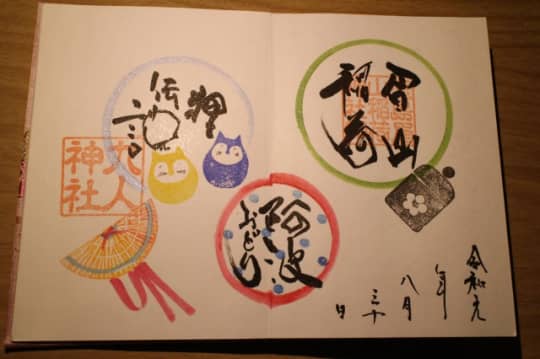 眉山
稲荷
狸
阿波
おどり
神社
令和元
年
八月
三十
日